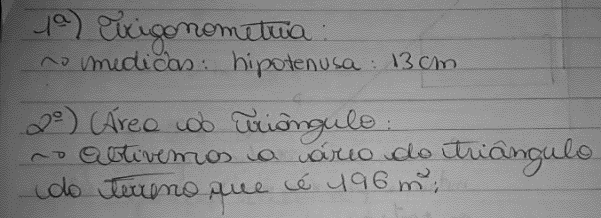 1ª) Trigonometria:
~> medidas: hipotenusa: 13 cm
2º) Área do Triângulo:
~> Obtivemos a área do triângulo
do terreno que é 196 m²;